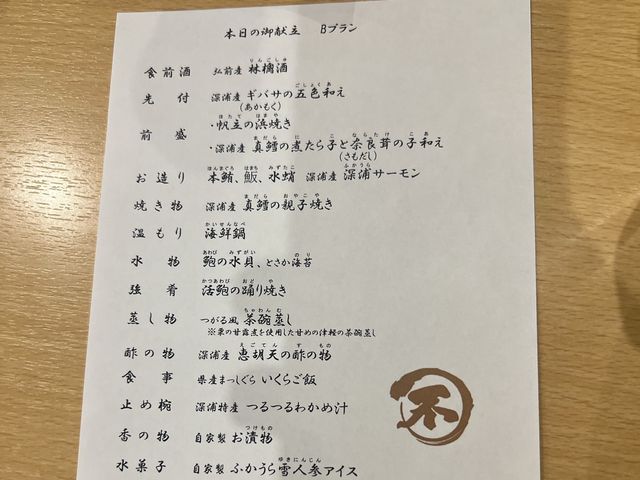 本日の御献立　Bプラン
食前酒　弘前産 林檎酒
先付　深浦産 ギバサの五色和え
(あかもく)
前盛　・帆立の浜焼き
・深浦産 真鱈の煮たら子と奈良茸の子和え
(さもだし)
お造り　本鮪、魬、水蛸　深浦産 深浦サーモン
焼き物　深浦産 真鱈の親子焼き
温もり　海鮮鍋
水物　鮑の水貝、とさか海苔
強肴　活鮑の踊り焼き
蒸し物　つがる風 茶碗蒸し
※栗の甘露煮を使用した甘めの津軽の茶碗蒸し
酢の物　深浦産 恵胡天の酢の物
食事　県産まっしぐら いくらご飯
止め椀　深浦特産 つるつるわかめ汁
香の物　自家製 お漬物
水菓子　自家製 ふかうら雪人参アイス
不